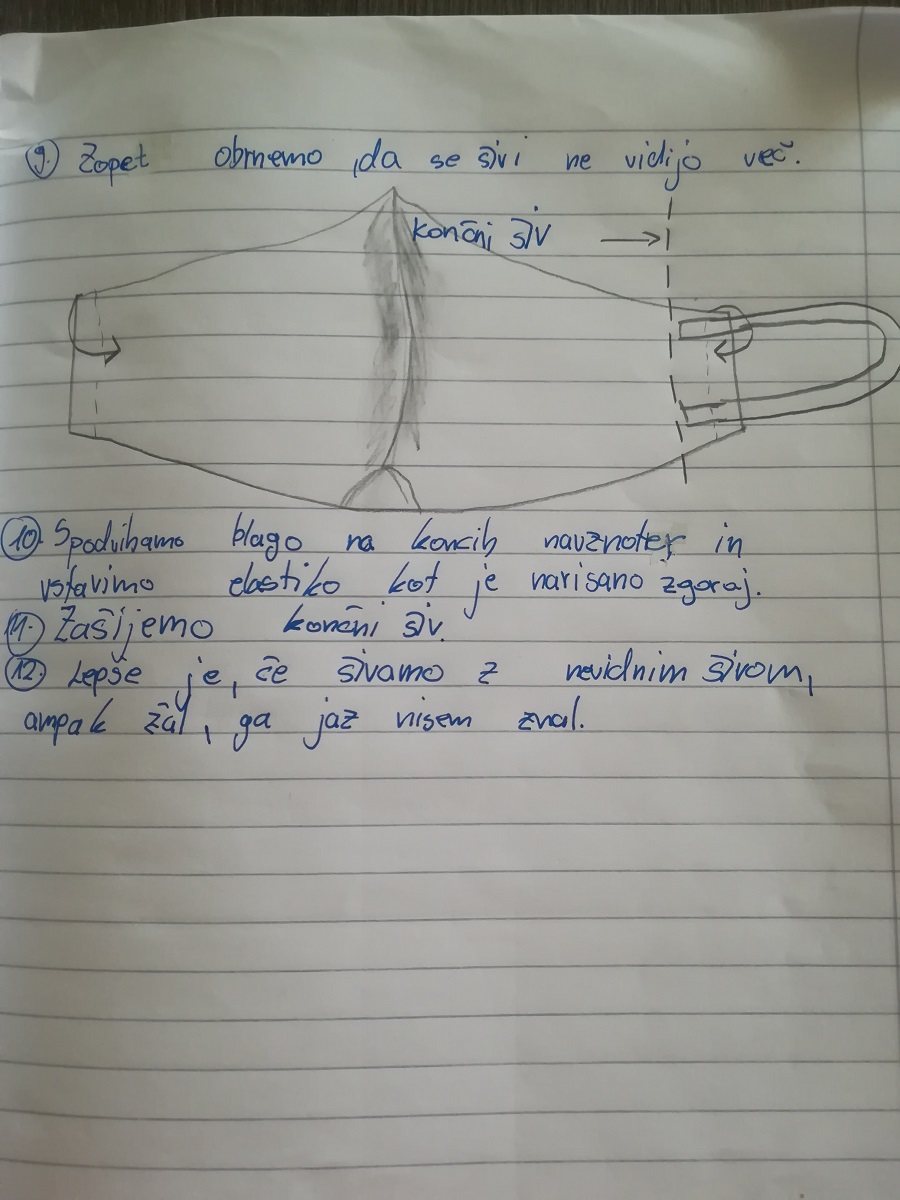 9. Zopet obrnemo, da se šivi ne vidijo več.
končni šiv
10. Spodvihamo blago na koncih navznoter in
vstavimo elastiko kot je narisano zgoraj.
11. Zašijemo končni šiv.
12. Lepše je, če šivamo z nevidnim šivom,
ampak žal, ga jaz nisem znal.